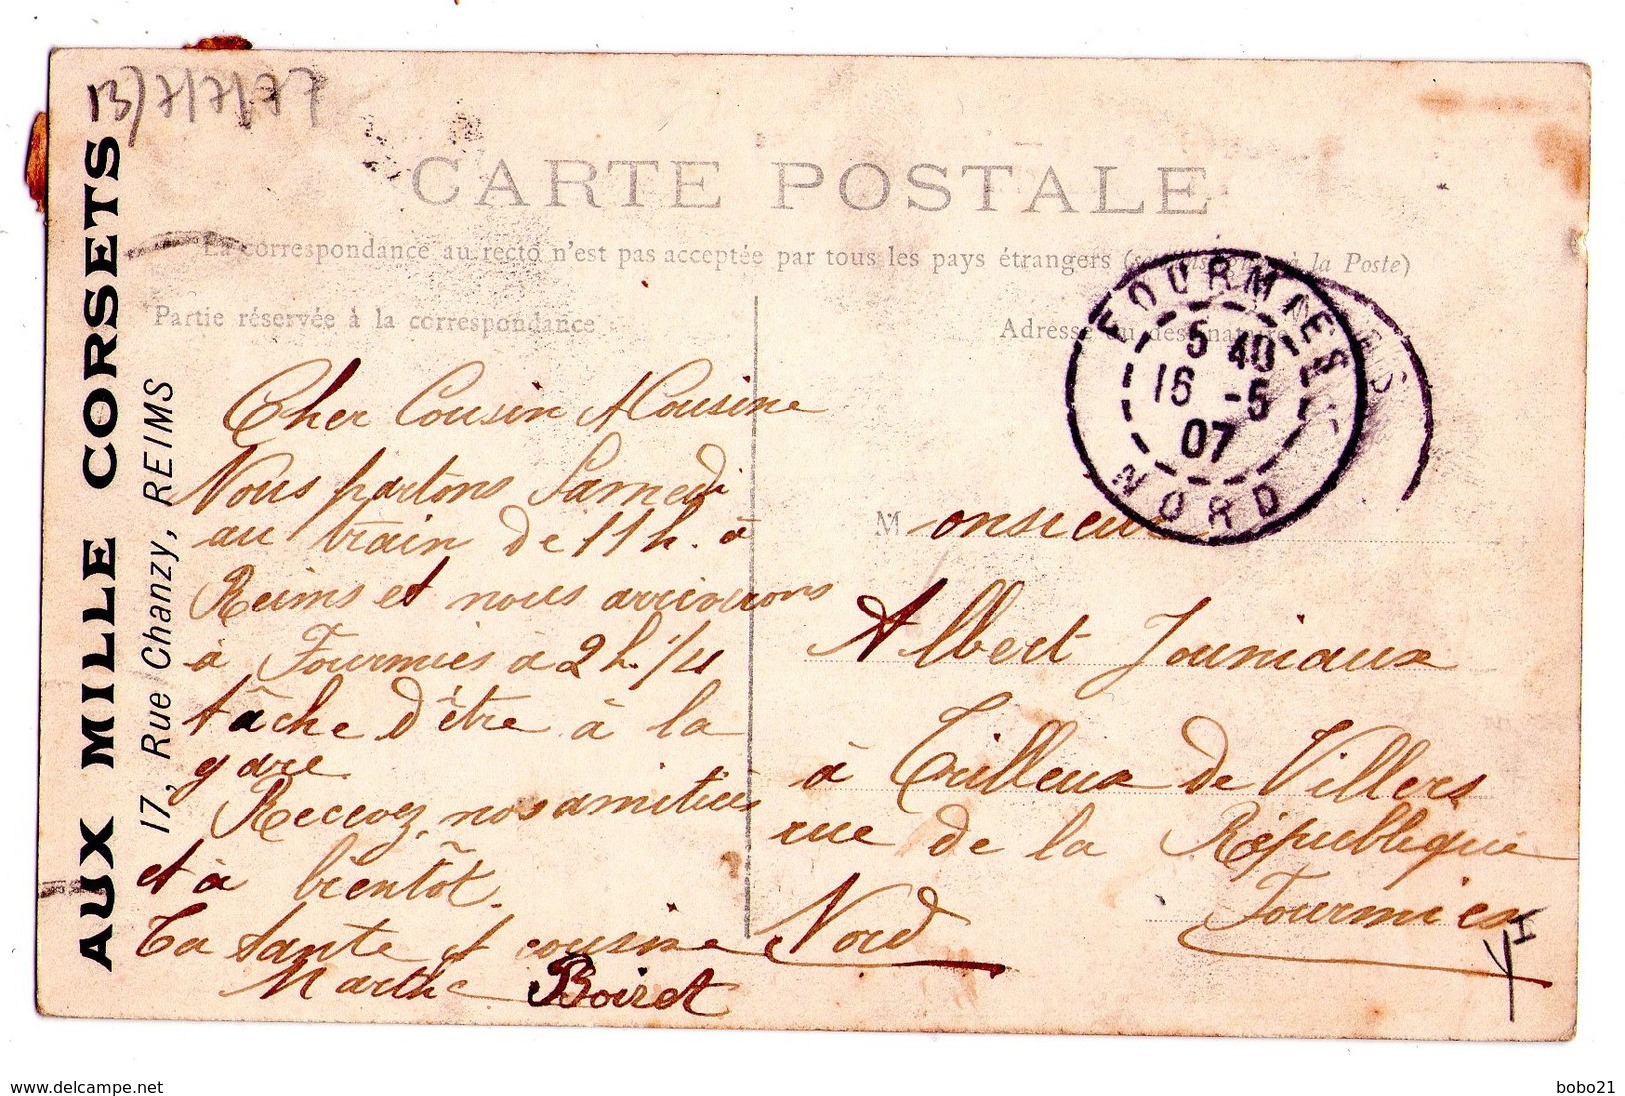 13/7/7/77
AUX MILLE CORSETS
17, Rue Chanzy, REIMS
CARTE POSTALE
La correspondance au recto n'est pas acceptée par tous les pays étrangers (se à la Poste)
Partie réservée à la correspondance
Adresse du destinataire
FOURMIES
5 40
16 -5
07
NORD
Cher Cousin & Cousine
Nous partons Samedi
au train de 11 h. à
Reims et nous arriverons
à Fourmies à 2 h. 1/4
tâche d'être à la
gare
Recevez nos amitiés
et à bientôt.
Ta tante et cousine
Marthe Boiret
Monsieur
Albert Jouniaux
à Trilleux de Villers
rue de la République
Fournies
Nord
delcampe.net
bobo21